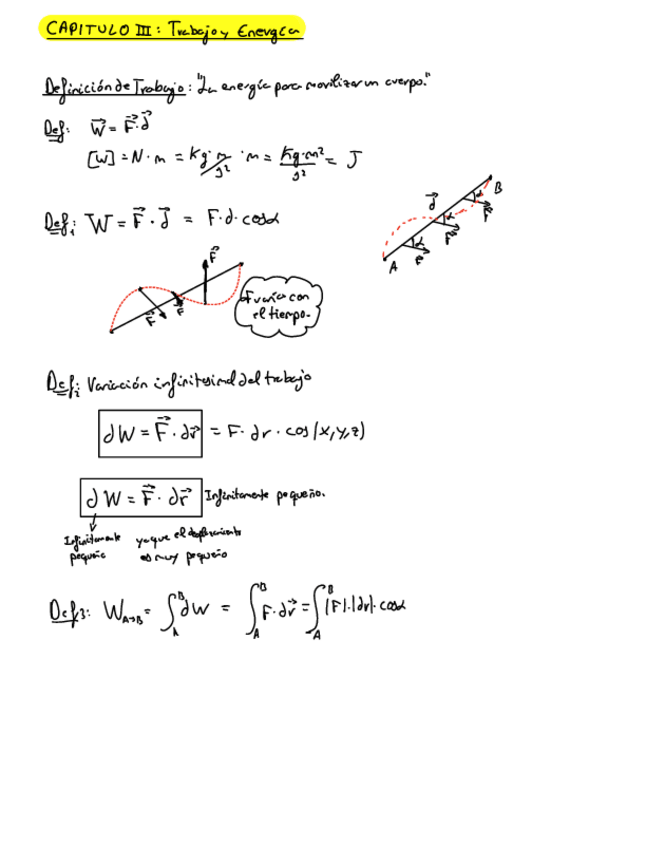 CAPITULO III: Trabajo y Energía
Definición de Trabajo: "La energía para movilizar un cuerpo."
Def: W⃗ = F⃗·d⃗
[W] = N·m = Kg·m/s² ·m = Kg·m²/s² = J
Def₁: W = F⃗ · d⃗ = F·d·cosα
A d⃗ B
α α α
F⃗ F⃗ F⃗
F⃗ F⃗ F⃗
F varía con
el tiempo.
Def₂: Variación infinitesimal del trabajo
dW = F⃗ · dr⃗ = F· dr · cos(x,y,z)
dW = F⃗ · dr⃗ Infinitamente pequeño.
Infinitamente ya que el desplazamiento
pequeño es muy pequeño
Def₃: W A→B = ∫ₐᴮ dW = ∫ₐᴮ F·dr⃗ = ∫ₐᴮ |F|·|dr|·cosα